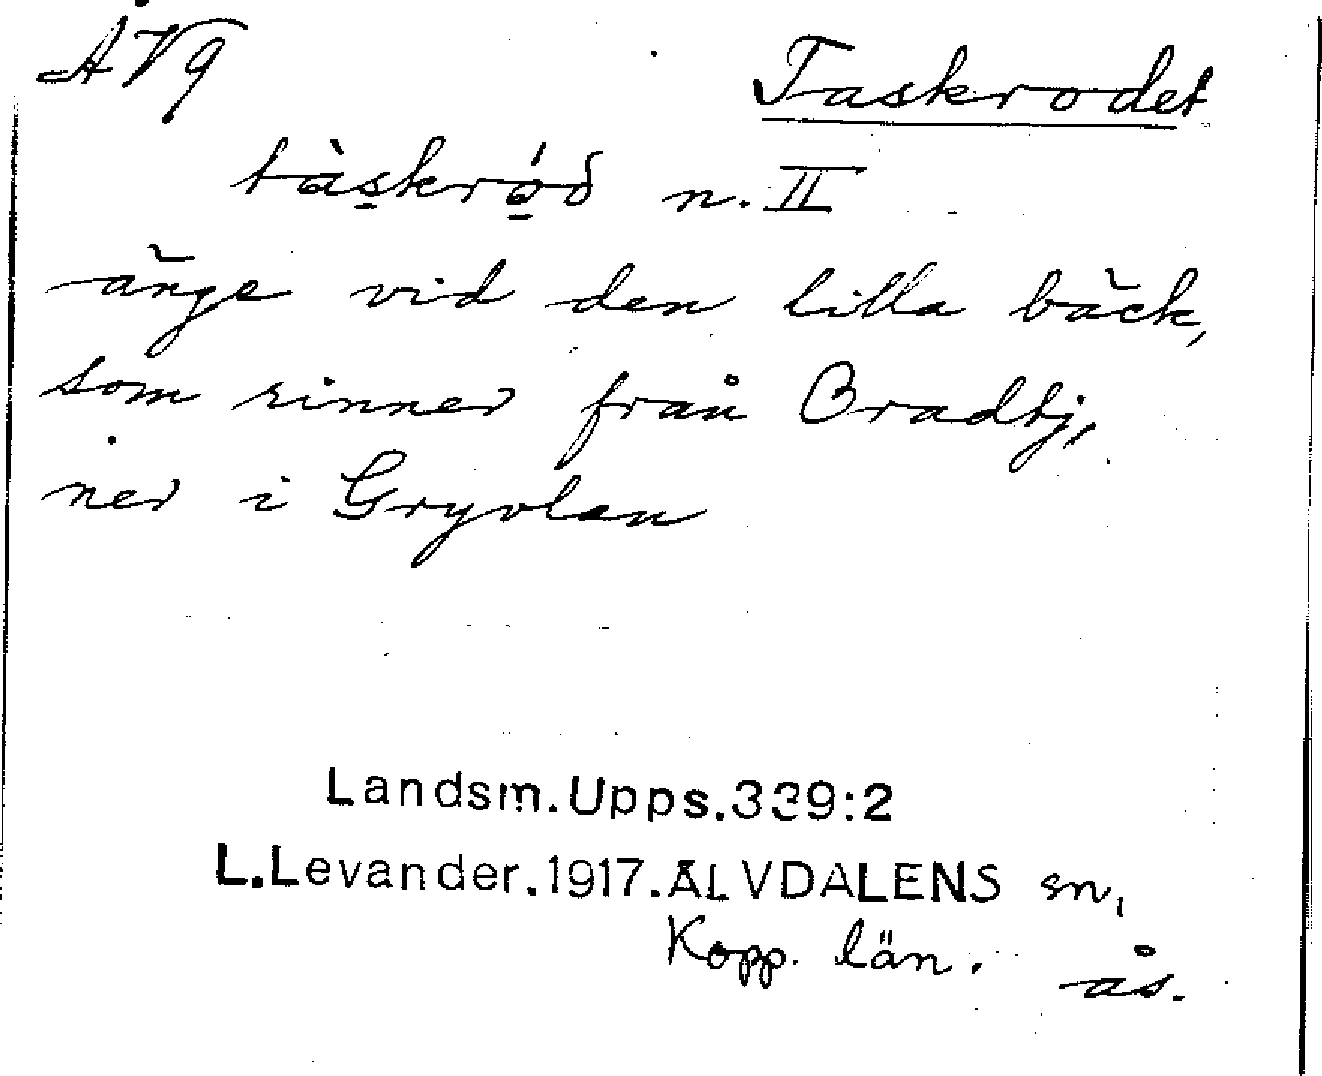 ÅVg
Taskrodet
tàskród n. II
änge vid den lilla bäck,
som rinner från Bradtj,
ner i Gryvlan
Landsm.Upps.339:2
L.Levander.1917.ÄLVDALENS sn,
Kopp. län. ås.